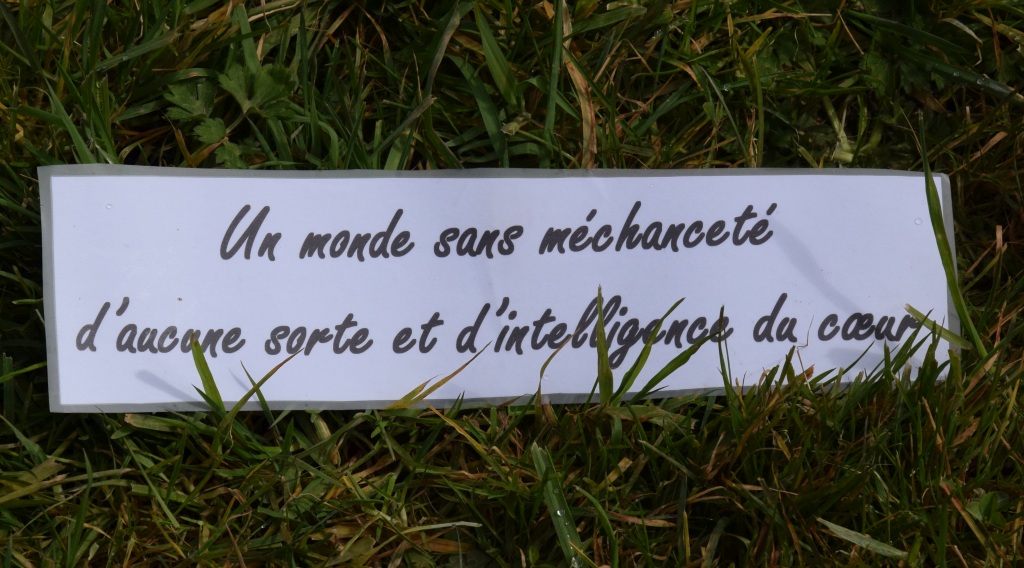 Un monde sans méchanceté
d'aucune sorte et d'intelligence du cœur